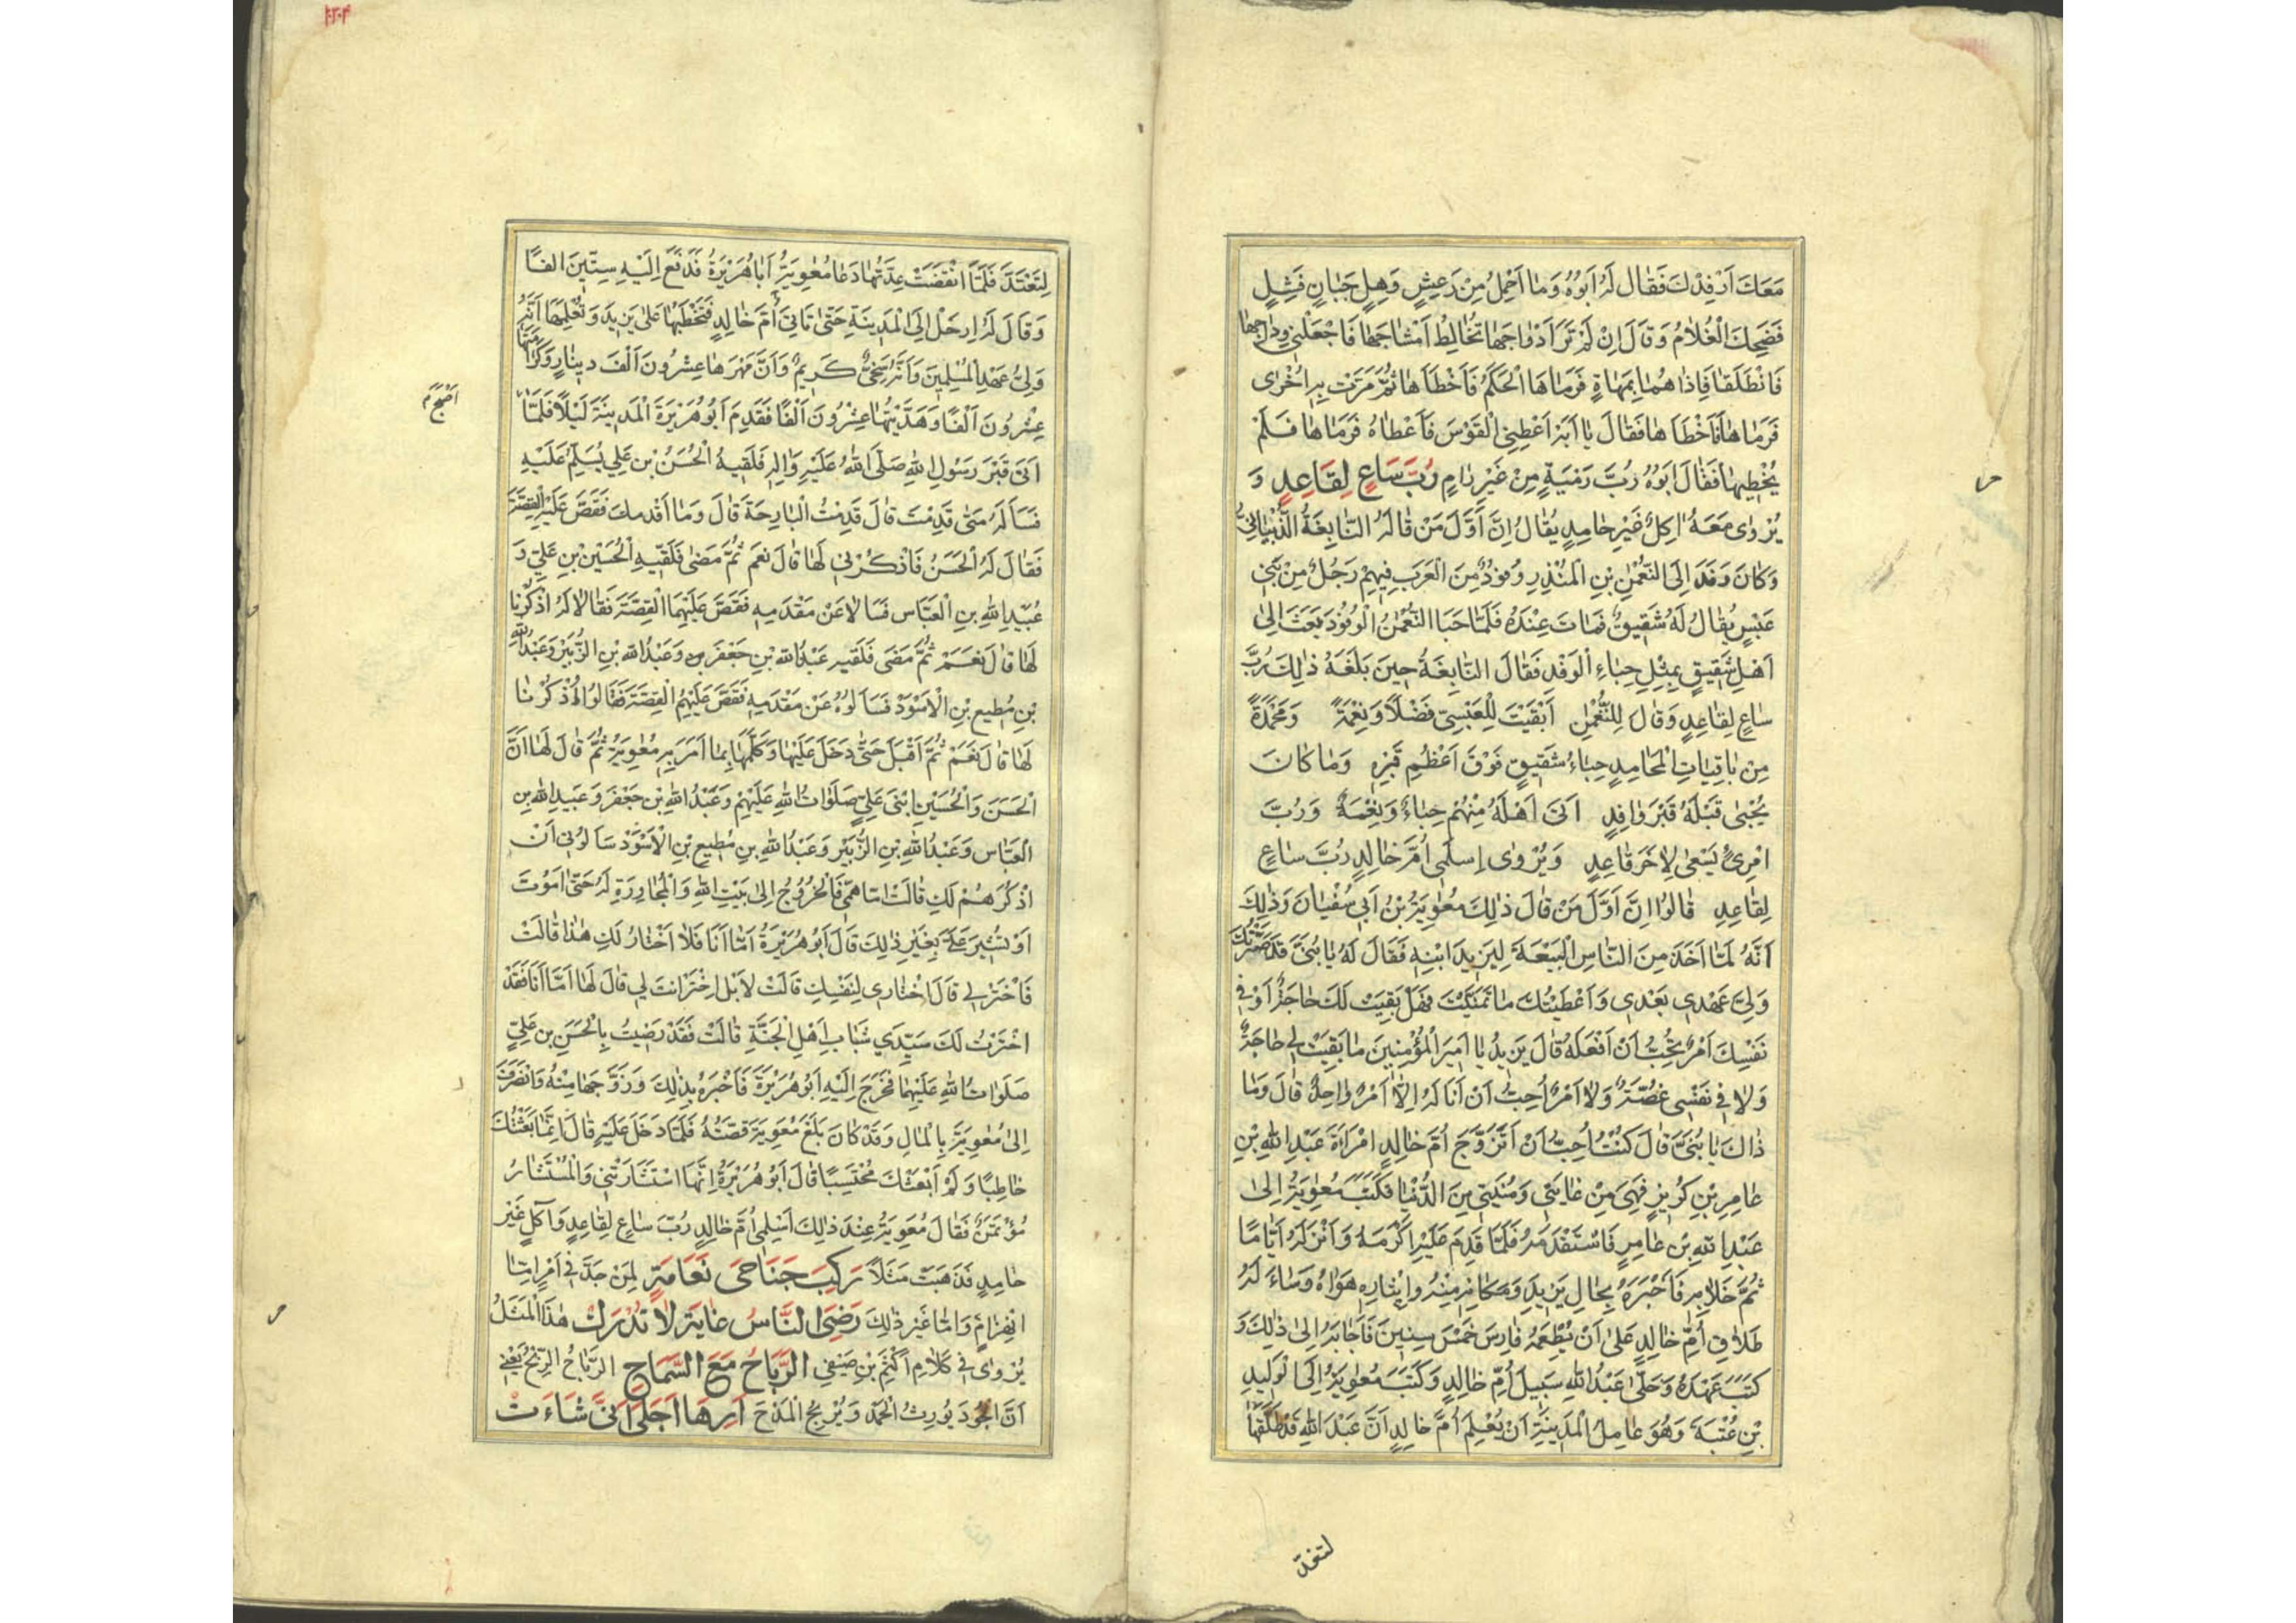 مَعَكَ اَرْفِدْكَ فَقَالَ لَهُ اَبُوهُ وَمَا اَحْمِلُ مِنْ رَعِشٍ وَهِلٍ جَبَانٍ فَشِلٍ
فَضَحِكَ الْغُلَامُ وَقَالَ اِنْ لَمْ تَرَ اَوْدَاجَهَا تُخَالِطُ اَمْشَاجَهَا فَاجْعَلْنِي وِدَاجَهَا
فَانْطَلَقَا فَاِذَا هُمَا بِمَهَاةٍ فَرَمَاهَا الْحَكَمُ فَاَخْطَاَهَا ثُمَّ مَرَّتْ بِهِ اُخْرٰى
فَرَمَاهَا فَاَخْطَاَهَا فَقَالَ يَا اَبَهْ اَعْطِنِي الْقَوْسَ فَاَعْطَاهُ فَرَمَاهَا فَلَمْ
يُخْطِهَا فَقَالَ اَبُوهُ رُبَّ رَمْيَةٍ مِنْ غَيْرِ رَامٍ رُبَّ سَاعٍ لِقَاعِدٍ وَ
يُرْوٰى مَعَهُ اٰكِلٌ غَيْرِ حَامِدٍ يُقَالُ اِنَّ اَوَّلَ مَنْ قَالَهُ النَّابِغَةُ الذُّبْيَانِيُّ
وَكَانَ وَفَدَ اِلَى النُّعْمٰنِ بْنِ الْمُنْذِرِ وُفُودٌ مِنَ الْعَرَبِ فِيهِمْ رَجُلٌ مِنْ بَنِي
عَبْسٍ يُقَالُ لَهُ شَقِيقٌ فَمَاتَ عِنْدَهُ فَلَمَّا حَبَا النُّعْمٰنُ الْوُفُودَ بَعَثَ اِلٰى
اَهْلِ شَقِيقٍ بِمِثْلِ حِبَاءِ الْوَفْدِ فَقَالَ النَّابِغَةُ حِينَ بَلَغَهُ ذٰلِكَ رُبَّ
سَاعٍ لِقَاعِدٍ وَقَالَ لِلنُّعْمٰنِ اَبْقَيْتَ لِلْعَبْسِيِّ فَضْلًا وَنِعْمَةً وَمَحْمَدَةً
مِنْ بَاقِيَاتِ الْمَحَامِدِ حِبَاءُ شَقِيقٍ فَوْقَ اَعْظُمِ قَبْرِهِ وَمَا كَانَ
يُحْبٰى قَبْلَهُ قَبْرُ وَافِدٍ اَتٰى اَهْلَهُ مِنْهُمْ حِبَاءٌ وَنِعْمَةٌ وَرُبَّ
امْرِئٍ يَسْعٰى لِاٰخَرَ قَاعِدٍ وَيُرْوٰى اِسْلَمِى اُمَّ خَالِدٍ رُبَّ سَاعٍ
لِقَاعِدٍ قَالُوا اِنَّ اَوَّلَ مَنْ قَالَ ذٰلِكَ مُعٰوِيَةُ بْنُ اَبِي سُفْيَانَ وَذٰلِكَ
اَنَّهُ لَمَّا اَخَذَ مِنَ النَّاسِ الْبَيْعَةَ لِيَزِيدَ ابْنِهِ فَقَالَ لَهُ يَا بُنَيَّ قَدْ صَيَّرْتُكَ
وَلِيَّ عَهْدِي بَعْدِي وَاَعْطَيْتُكَ مَا تَمَنَّيْتَ فَهَلْ بَقِيَتْ لَكَ حَاجَةٌ اَوْ فِي
نَفْسِكَ اَمْرٌ تُحِبُّ اَنْ اَفْعَلَهُ قَالَ يَزِيدُ يَا اَمِيرَ الْمُؤْمِنِينَ مَا بَقِيَتْ لِي حَاجَةٌ
وَلَا فِي نَفْسِي غُصَّةٌ وَلَا اَمْرٌ اُحِبُّ اَنْ اَنَالَهُ اِلَّا اَمْرٌ وَاحِدٌ قَالَ وَمَا
ذَاكَ يَا بُنَيَّ قَالَ كُنْتُ اُحِبُّ اَنْ اَتَزَوَّجَ اُمَّ خَالِدٍ امْرَاَةَ عَبْدِ اللّٰهِ بْنِ
عَامِرِ بْنِ كُرَيْزٍ فَهِيَ مِنْ غَايَتِي وَمُنْيَتِي مِنَ الدُّنْيَا فَكَتَبَ مُعٰوِيَةُ اِلٰى
عَبْدِ اللّٰهِ بْنِ عَامِرٍ فَاسْتَقْدَمَهُ فَلَمَّا قَدِمَ عَلَيْهِ اَكْرَمَهُ وَاَنْزَلَهُ اَيَّامًا
ثُمَّ خَلَا بِهِ فَاَخْبَرَهُ بِحَالِ يَزِيدَ وَمَكَانِهِ مِنْهُ وَاِيثَارِهِ هَوَاهُ وَسَاَلَهُ
طَلَاقَ اُمِّ خَالِدٍ عَلٰى اَنْ يُطْعِمَهُ فَارِسَ خَمْسَ سِنِينَ فَاَجَابَهُ اِلٰى ذٰلِكَ وَ
كَتَبَ عَهْدَهُ وَخَلّٰى عَبْدُ اللّٰهِ سَبِيلَ اُمِّ خَالِدٍ وَكَتَبَ مُعٰوِيَةُ اِلَى الْوَلِيدِ
بْنِ عُتْبَةَ وَهُوَ عَامِلُ الْمَدِينَةِ اَنْ يُعْلِمَ اُمَّ خَالِدٍ اَنَّ عَبْدَ اللّٰهِ قَدْ طَلَّقَهَا
لتعتدّ
٢٠٤
لِتَعْتَدَّ فَلَمَّا انْقَضَتْ عِدَّتُهَا دَعَا مُعٰوِيَةُ اَبَا هُرَيْرَةَ فَدَفَعَ اِلَيْهِ سِتِّينَ اَلْفًا
وَقَالَ لَهُ ارْحَلْ اِلَى الْمَدِينَةِ حَتّٰى تَاْتِيَ اُمَّ خَالِدٍ فَتَخْطُبَهَا عَلٰى يَزِيدَ وَتُعْلِمَهَا اَنَّهُ
وَلِيُّ عَهْدِ الْمُسْلِمِينَ وَاَنَّهُ سَخِيٌّ كَرِيمٌ وَاَنَّ مَهْرَهَا عِشْرُونَ اَلْفَ دِينَارٍ وَكَرَامَتَهَا
عِشْرُونَ اَلْفًا وَهَدِيَّتُهَا عِشْرُونَ اَلْفًا فَقَدِمَ اَبُو هُرَيْرَةَ الْمَدِينَةَ لَيْلًا فَلَمَّا
اَصْبَحَ م
اَتٰى قَبْرَ رَسُولِ اللّٰهِ صَلَّى اللّٰهُ عَلَيْهِ وَاٰلِهِ فَلَقِيَهُ الْحَسَنُ بْنُ عَلِيٍّ يُسَلِّمُ عَلَيْهِ
فَسَاَلَهُ مَتٰى قَدِمْتَ قَالَ قَدِمْتُ الْبَارِحَةَ قَالَ وَمَا اَقْدَمَكَ فَقَصَّ عَلَيْهِ الْقِصَّةَ
فَقَالَ لَهُ الْحَسَنُ فَاذْكُرْنِي لَهَا قَالَ نَعَمْ ثُمَّ مَضٰى فَلَقِيَهُ الْحُسَيْنُ بْنُ عَلِيٍّ وَ
عُبَيْدُ اللّٰهِ بْنُ الْعَبَّاسِ فَسَاَلَا عَنْ مَقْدَمِهِ فَقَصَّ عَلَيْهِمَا الْقِصَّةَ فَقَالَا لَهُ اذْكُرْنَا
لَهَا قَالَ نَعَمْ ثُمَّ مَضَى فَلَقِيَهُ عَبْدُ اللّٰهِ بْنُ جَعْفَرٍ وَعَبْدُ اللّٰهِ بْنُ الزُّبَيْرِ وَعَبْدُ اللّٰهِ
بْنُ مُطِيعِ بْنِ الْاَسْوَدِ فَسَاَلُوهُ عَنْ مَقْدَمِهِ فَقَصَّ عَلَيْهِمُ الْقِصَّةَ فَقَالُوا اُذْكُرْنَا
لَهَا قَالَ نَعَمْ ثُمَّ اَقْبَلَ حَتّٰى دَخَلَ عَلَيْهَا وَكَلَّمَهَا بِمَا اَمَرَ بِهِ مُعٰوِيَةُ ثُمَّ قَالَ لَهَا اَنَّ
الْحَسَنَ وَالْحُسَيْنِ ابْنَيْ عَلِيٍّ صَلَوَاتُ اللّٰهِ عَلَيْهِمْ وَعَبْدُ اللّٰهِ بْنَ جَعْفَرَ وَعُبَيْدِ اللّٰهِ بْنِ
الْعَبَّاسِ وَعَبْدُ اللّٰهِ بْنِ الزُّبَيْرِ وَعَبْدُ اللّٰهِ بْنِ مُطِيعِ بْنِ الْاَسْوَدِ سَاَلُونِي اَنْ
اَذْكُرَهُمْ لَكِ قَالَتْ اَمَّا هَمِّي فَالْخُرُوجُ اِلٰى بَيْتِ اللّٰهِ وَالْمُجَاوِرَةِ لَهُ حَتّٰى اَمُوتَ
اَوْ تُشِيرَ عَلَيَّ بِغَيْرِ ذٰلِكَ قَالَ اَبُو هُرَيْرَةَ اَمَّا اَنَا فَلَا اَخْتَارُ لَكِ هٰذَا قَالَتْ
فَاخْتَرْ لِي قَالَ اخْتَارِي لِنَفْسِكِ قَالَتْ لَا بَلِ اخْتَرْ اَنْتَ لِي قَالَ لَهَا اَمَّا اَنَا فَقَدْ
اخْتَرْتُ لَكِ سَيِّدَيْ شَبَابِ اَهْلِ الْجَنَّةِ قَالَتْ فَقَدْ رَضِيتُ بِالْحَسَنِ بْنِ عَلِيٍّ
صَلَوَاتُ اللّٰهِ عَلَيْهِمَا فَخَرَجَ اِلَيْهِ اَبُو هُرَيْرَةَ فَاَخْبَرَهُ بِذٰلِكَ وَزَوَّجَهَا مِنْهُ وَانْصَرَفَ
اِلٰى مُعٰوِيَةَ بِالْمَالِ وَقَدْ كَانَ بَلَغَ مُعٰوِيَةَ قِصَّتُهُ فَلَمَّا دَخَلَ عَلَيْهِ قَالَ اِنَّمَا بَعَثْتُكَ
خَاطِبًا وَلَمْ اَبْعَثْكَ مُحْتَسِبًا قَالَ اَبُو هُرَيْرَةَ اِنَّهَا اسْتَشَارَتْنِي وَالْمُسْتَشَارُ
مُؤْتَمَنٌ فَقَالَ مُعٰوِيَةُ عِنْدَ ذٰلِكَ اَسْلِمِى اُمَّ خَالِدٍ رُبَّ سَاعٍ لِقَاعِدٍ وَاٰكِلٍ غَيْرِ
حَامِدٍ فَذَهَبَتْ مَثَلًا رَكِبَ جَنَاحَيْ نَعَامَةٍ لِمَنْ جَدَّ فِي اَمْرٍ اِمَّا
انْهِزَامٍ وَاِمَّا غَيْرِ ذٰلِكَ رِضَى النَّاسِ غَايَةٌ لَا تُدْرَكُ هٰذَا الْمَثَلُ
يُرْوٰى فِي كَلَامِ اَكْثَمَ بْنِ صَيْفِيٍّ الرَّبَاحُ مَعَ السَّمَاحِ الرَّبَاحُ الرِّبْحُ يَعْنِي
اَنَّ الْجُودَ يُورِثُ الْحَمْدَ وَيُرْبِحُ الْمَدْحَ اَرِهَا اَجَلٰى اَنّٰى شَاءَتْ